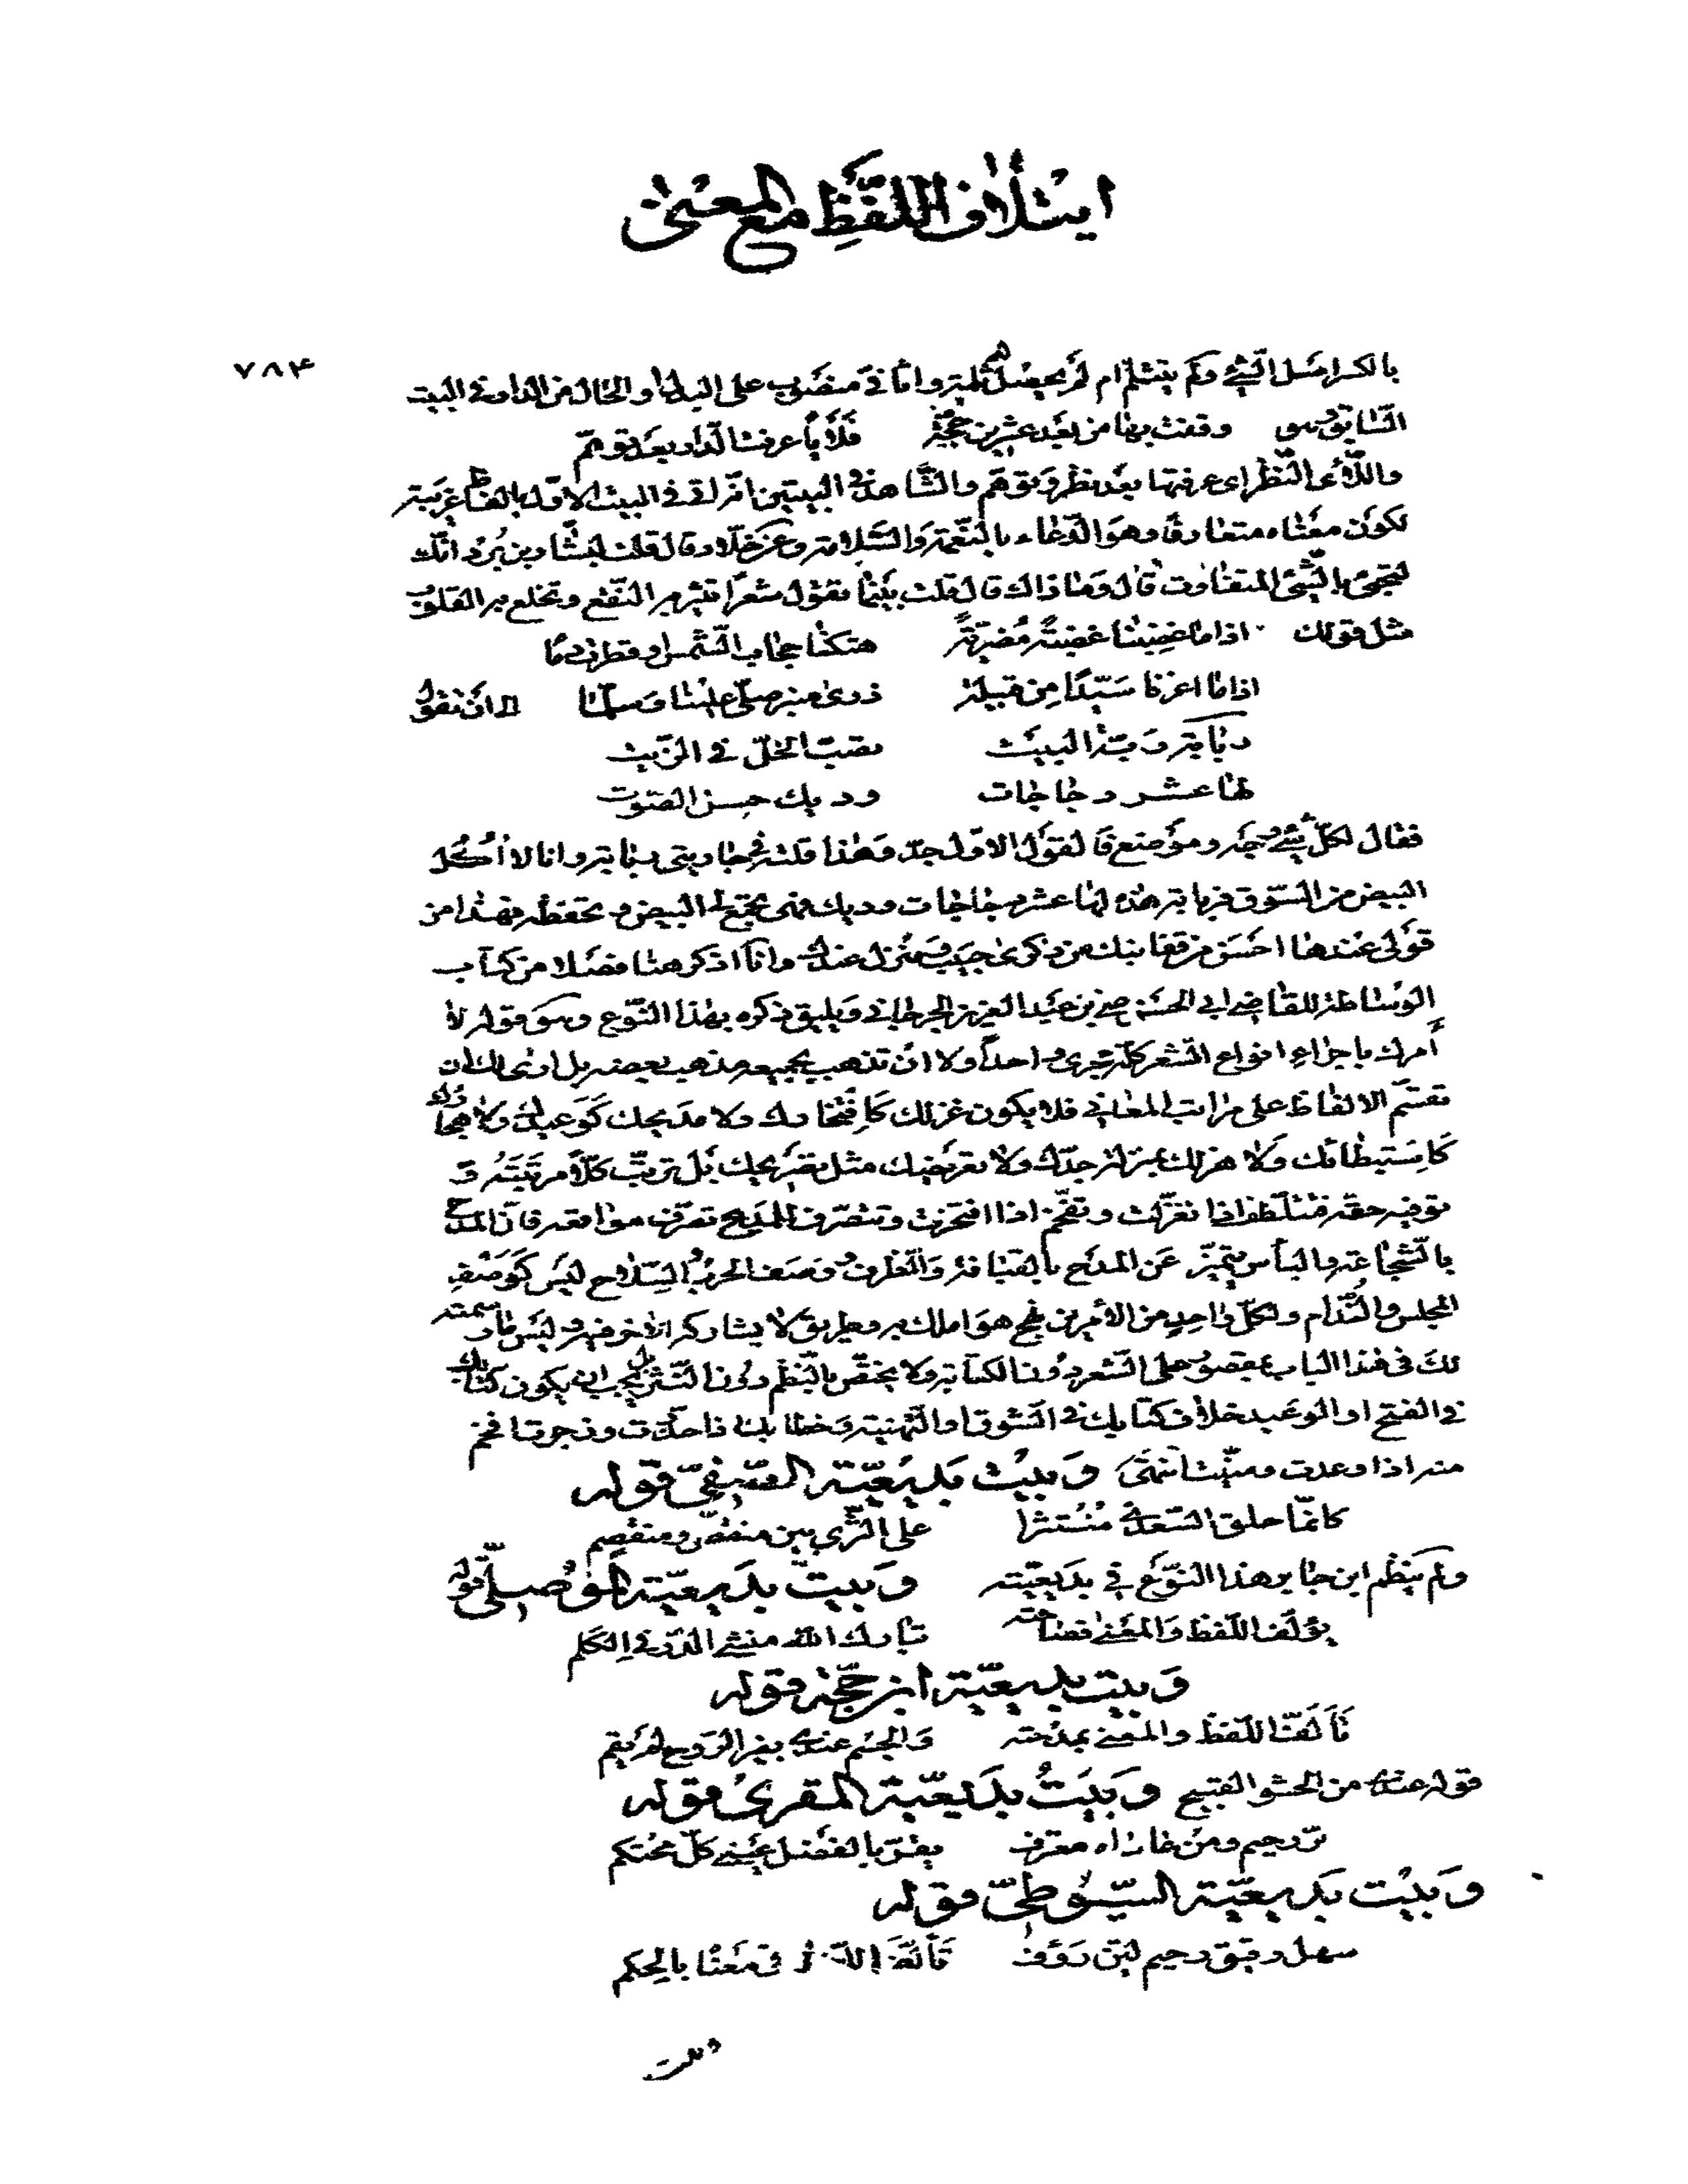 ايتلاف اللفظ مع المعنى
٧٨۴
بالكسر اصل الشئ ولم يتثلم ام لم يحصل ثلمه واثافى منصوب على البدل او الحال من الدار فى البيت
السابق وهو وقفت بها من بعد عشرين حجة فلأيا عرفت الدار بعد توهم
واللأى النظر اى عرفتها بعد نظر وتوهم والشاهد فى البيتين انه اتى فى البيت الاول بالفاظ غريبة
لكون معناه متعارفا وهو الدعاء بالنعمة والسلامة وعن خلاد قال قلت لبشار بن برد انك
لتجئ بالشئ المتفاوت قال وما ذاك قال قلت بينما تقول شعرا تثير به النقع وتخلع به القلوب
مثل قولك اذا ما غضبنا غضبة مضرية هتكنا حجاب الشمس او قطرت دما
اذا ما اعرنا سيدا من قبيلة ذرى منبر صلى علينا وسلما الى ان تقول
ربابة ربة البيت تصب الخل فى الزيت
لها عشر دجاجات وديك حسن الصوت
فقال لكل شئ وجه وموضع فالقول الاول جد وهذا قلته فى جاريتى ربابة وانا لا آكل
البيض من السوق فربابة هذه لها عشر دجاجات وديك فهى تجمع لى البيض وتحفظه فهذا من
قولى عندها احسن من قفا نبك من ذكرى حبيب ومنزل عندك وانا اذكر هنا فصلا من كتاب
الوساطة للقاضى ابى الحسن على بن عبد العزيز الجرجانى ويليق ذكره بهذا النوع وهو قوله لا
أمرك باجراء انواع الشعر كله مجرى واحدا ولا ان تذهب بجميعه مذهب بعضه بل ارى لك ان
تقسم الالفاظ على مراتب المعانى فلا يكون غزلك كافتخارك ولا مديحك كوعيدك ولا هجاؤك
كاستبطائك ولا هزلك بمنزلة جدك ولا تعريضك مثل تصريحك بل ترتب كلا مرتبته و
توفيه حقه فتتلطف اذا تغزلت وتفخم اذا افتخرت وتتصرف للمديح تصرف مواقعه فان المدح
بالشجاعة والبأس يتميز عن المدح باللباقة والظرف ووصف الحرب والسلاح ليس كوصف
المجلس والمدام ولكل واحد من الأمرين نهج هو املك به وطريق لا يشاركه الآخر فيه وليس ما رسمته
لك فى هذا الباب بمقصور على الشعر دون الكتابة ولا يختص بالنظم دون النثر بل يجب ان يكون كتابك
فى الفتح او الوعيد خلاف كتابك فى التشوق او التهنية وخطابك اذا حذرت وزجرت افخم
منه اذا وعدت ومنيت انتهى وبيت بديعية الصفى قوله
كانما حلق السعدى منتثرا على الثرى بين منفض ومنفصم
ولم ينظم ابن جابر هذا النوع فى بديعيته وبيت بديعية الموصلى قوله
يؤلف اللفظ والمعنى فصاحته تبارك الله منشى الدر فى الكلم
وبيت بديعية ابن حجة قوله
تألف اللفظ والمعنى بمدحته والجسم عندى بغير الروح لم يقم
قوله عندى من الحشو القبيح وبيت بديعية المقرى قوله
بر رحيم ومن عاداه معترف يقر بالفضل كل محتكم
وبيت بديعية السيوطى قوله
سهل رقيق رحيم لين رؤف تألف اللفظ فى معناه بالحكم